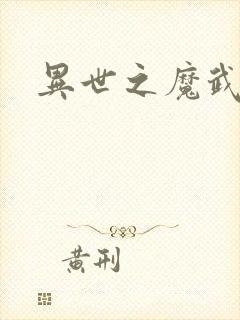 異世之魔武
黃刑